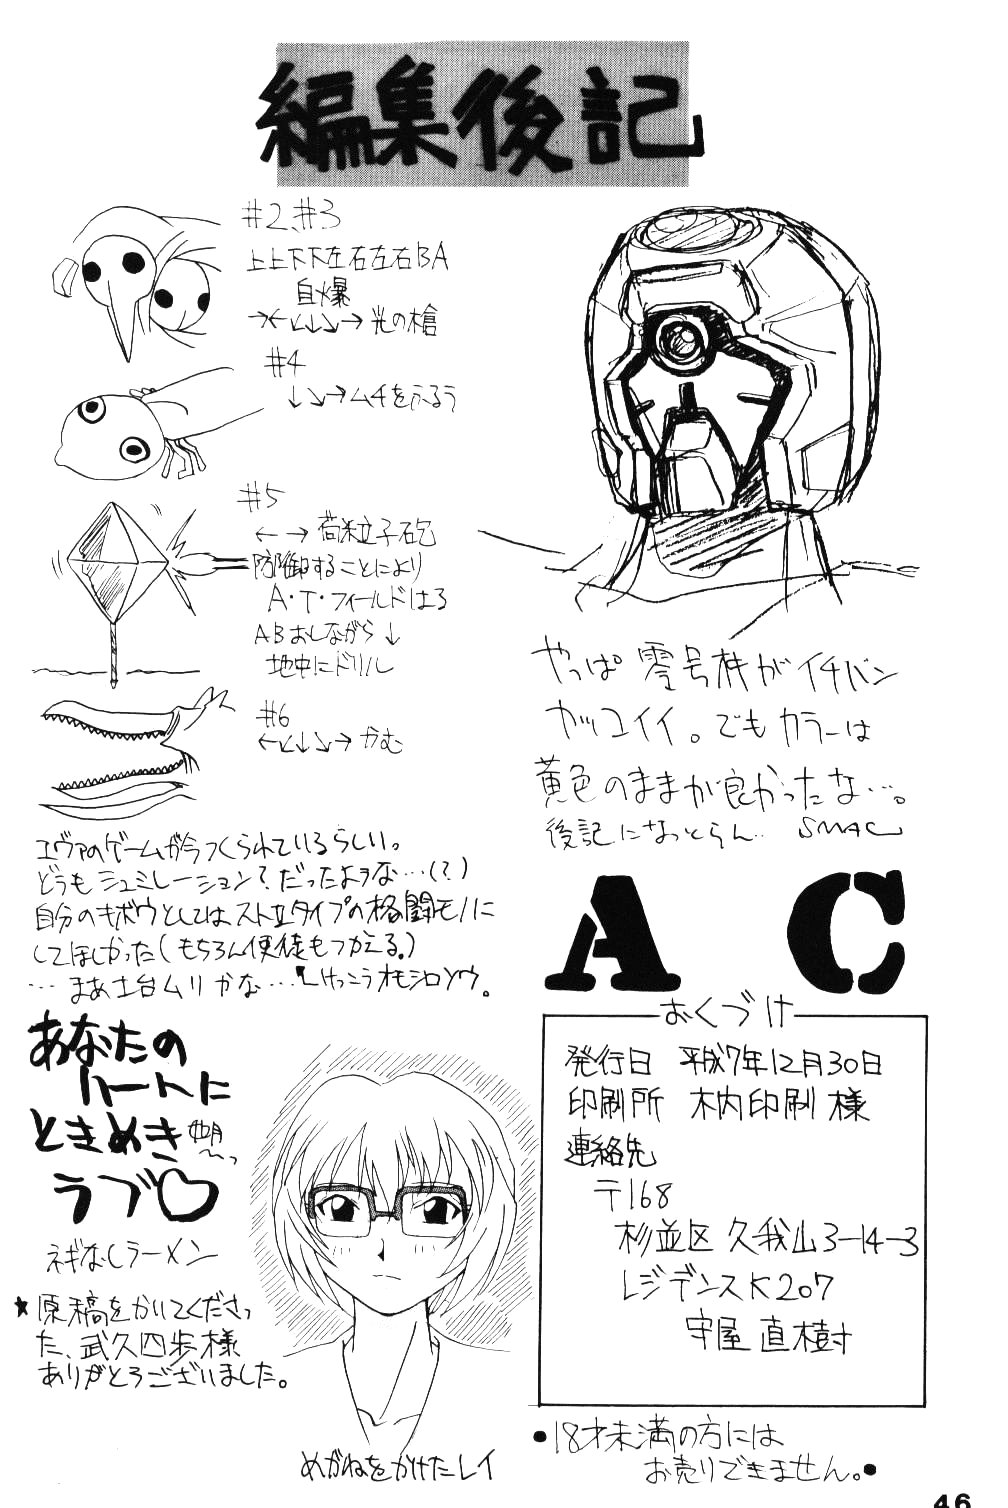 編集後記
#2、#3
上上下下左右左右BA
自爆
→←↙↓↘→ 光の槍
#4
↓↘→ムチをふるう
#5
← → 荷粒子砲
防御することにより
A・T・フィールドはる
ABおしながら↓
地中にドリル
#6
←↙↓↘→ かむ
エヴァのゲームが今つくられているらしい。
どうもシュミレーション?だったよヲな…(?)
自分のキボウとしてはストⅡタイプの格闘モノに
してほしかった(もちろん使徒もつかえる。)
…まあ土台ムリかな…けっこうオモシロソウ。
やっぱ零号機がイチバン
カッコイイ。でもカラーは
黄色のままが良かったな…。
後記になっとらん… SMAC
A C
おくづけ
発行日 平成7年12月30日
印刷所 木内印刷 様
連絡先
〒168
杉並区 久我山3-14-3
レジデンスK207
守屋 直樹
●18才未満の方には
お売りできません。●
あなたの
ハートに
ときめき
ラブ♡
ネギなしラーメン
★原稿をかいてくださっ
た、武久四歩様
ありがとうございました。
めがねをかけたレイ
46